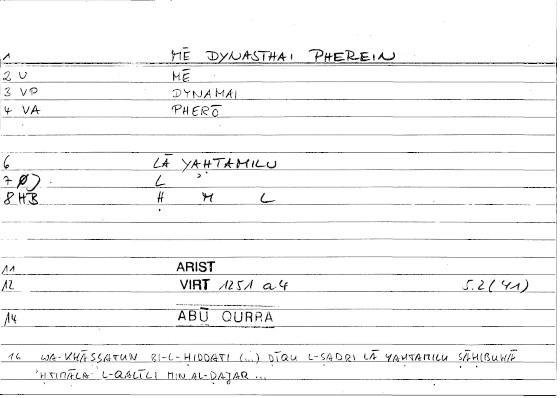 1 MĒ DYNASTHAI PHEREIN
2 U MĒ
3 VP DYNAMAI
4 VA PHERŌ
6 LĀ YAḤTAMILU
7 Ø) L
8 HB Ḥ M L
11 ARIST
12 VIRT 1251 a4 5.2(41)
14 ABŪ QURRA
16 WA-KHĀṢṢATUN BI-L-ḤIDDATI (...) ḌĪQU L-ṢADRI LĀ YAḤTAMILU ṢĀḤIBUHĀ
ḤTIMĀLA L-QALĪLI MIN AL-ḌAJAR ...